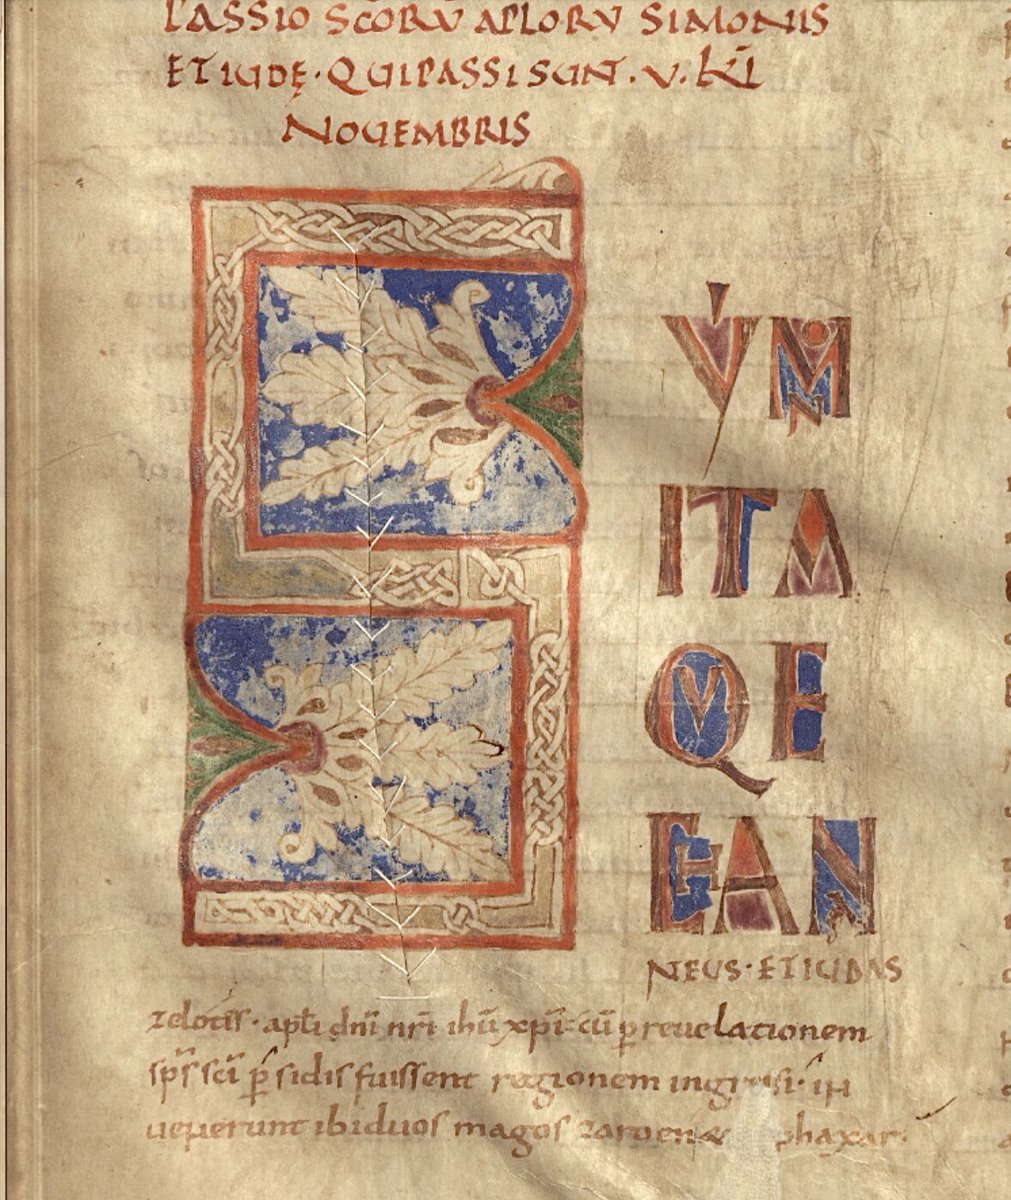 PASSIO SCŌRŪ APLORV SIMONIS
ET IUDĘ · QUI PASSI SUNT · V · KL̄
NOUEMBRIS
S YMN
ITA
QVE
CHAN
NEUS · ET IUDAS
zelotis · apłi dn̄i nr̄i ih̄u xp̄i · cū p revelationem
sp̄s sc̄i p̄sidis fuissent regionem ingressi · IN
uenerunt ibi duos magos zaroen & phaxar·